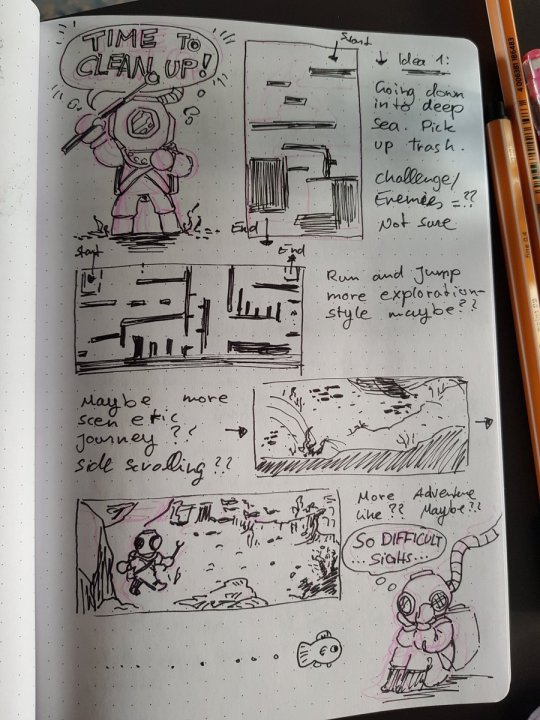 TIME TO
CLEAN UP!
Start
↓ Idea 1:
Going down
into deep
sea. Pick
up trash.
Challenge/
Enemies = ??
Not sure
End
Start
End
Run and Jump
more exploration-
style maybe??
Maybe more
scenetic
journey ??
Side scrolling ??
More Adventure
like ?? Maybe??
SO DIFFICULT
...SIGHS...